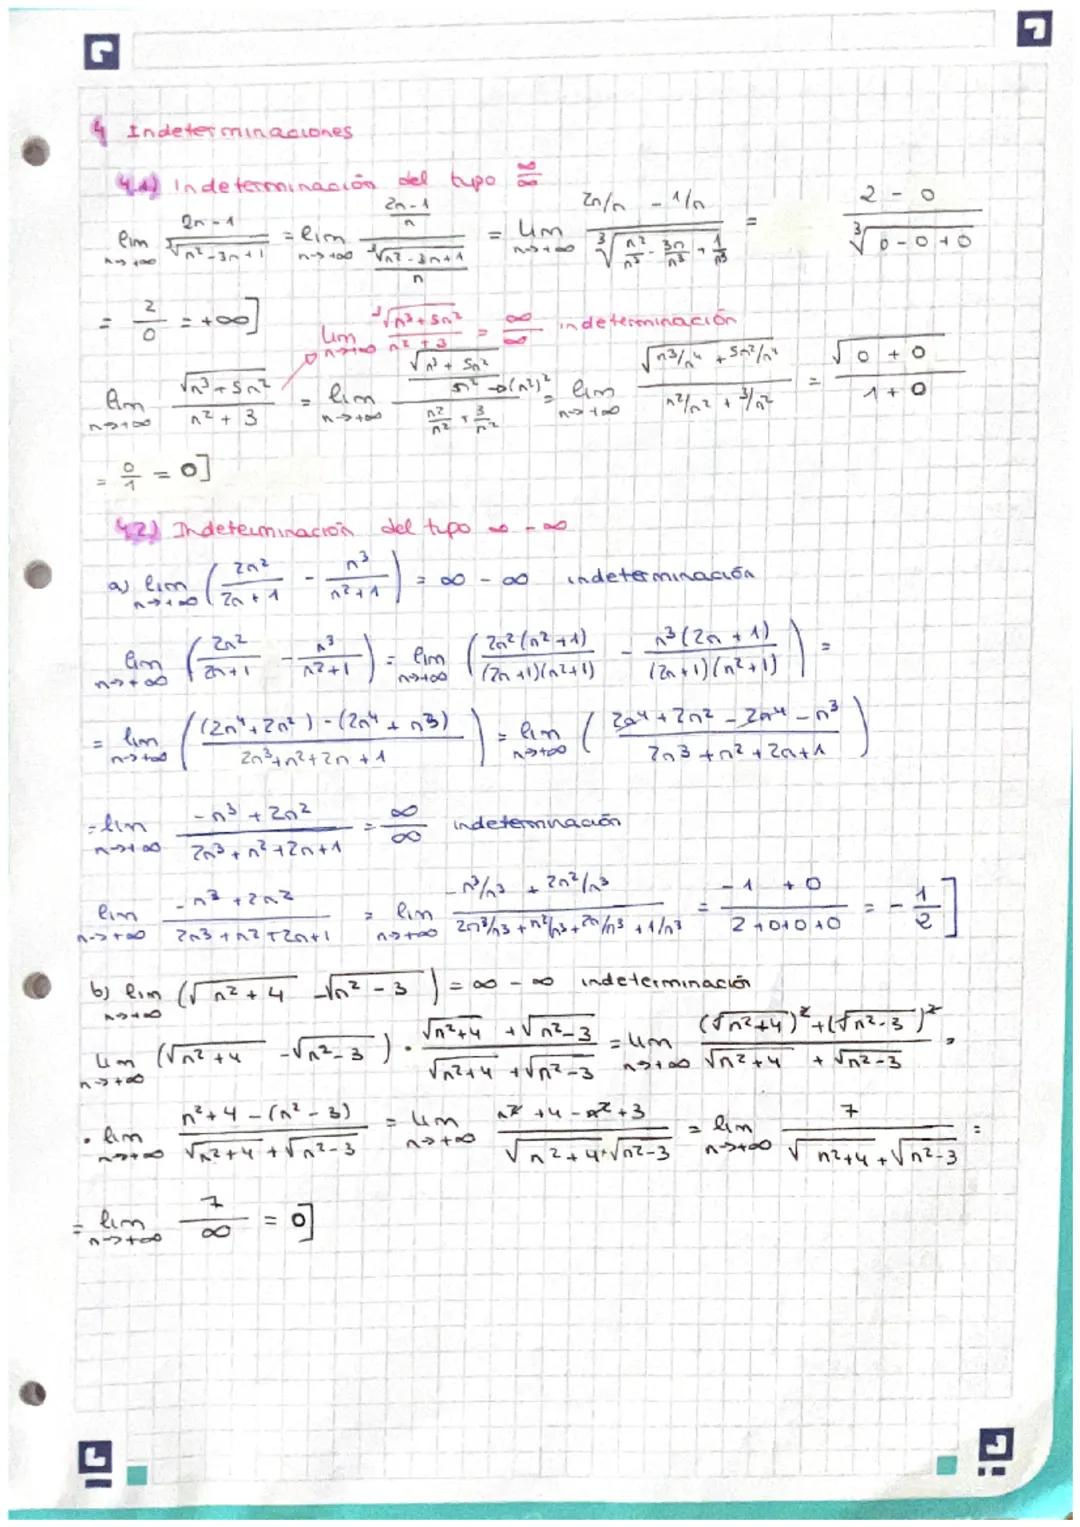 4 Indeterminaciones
4.1) Indeterminación del tipo ∞/∞
lim n→+∞ (2n-1)/∛(n²-3n+1) = lim n→+∞ ((2n-1)/n)/(∛(n²-3n+1)/n) = lim n→+∞ (2n/n - 1/n)/∛(n²/n³ - 3n/n³ + 1/n³) = (2-0)/∛(0-0+0)
= 2/0 = +∞]
lim n→+∞ √(n³+5n²)/(n²+3) = ∞/∞ indeterminación
lim n→+∞ √(n³+5n²)/(n²+3) = lim n→+∞ (√(n³+5n²)/n² → (n²)²)/(n²/n² + 3/n²) = lim n→+∞ √(n³/n⁴ + 5n²/n⁴)/(n²/n² + 3/n²) = √(0+0)/(1+0)
= 0/1 = 0]
4.2) Indeterminación del tipo ∞ - ∞
a) lim n→+∞ (2n²/(2n+1) - n³/(n²+1)) = ∞ - ∞ indeterminación
lim n→+∞ (2n²/(2n+1) - n³/(n²+1)) = lim n→+∞ (2n²(n²+1)/((2n+1)(n²+1)) - n³(2n+1)/((2n+1)(n²+1))) =
= lim n→+∞ (((2n⁴+2n²)-(2n⁴+n³))/(2n³+n²+2n+1)) = lim n→+∞ ((2n⁴+2n²-2n⁴-n³)/(2n³+n²+2n+1))
= lim n→+∞ (-n³+2n²)/(2n³+n²+2n+1) = ∞/∞ indeterminación
lim n→+∞ (-n³+2n²)/(2n³+n²+2n+1) = lim n→+∞ (-n³/n³ + 2n²/n³)/(2n³/n³ + n²/n³ + 2n/n³ + 1/n³) = (-1+0)/(2+0+0+0) = -1/2]
b) lim n→+∞ (√(n²+4) - √(n²-3)) = ∞ - ∞ indeterminación
lim n→+∞ (√(n²+4) - √(n²-3)) · (√(n²+4) + √(n²-3))/(√(n²+4) + √(n²-3)) = lim n→+∞ ((√(n²+4))² + (√(n²-3))²)/(√(n²+4) + √(n²-3)) =
= lim n→+∞ (n²+4-(n²-3))/(√(n²+4) + √(n²-3)) = lim n→+∞ (n²+4-n²+3)/(√(n²+4) + √(n²-3)) = lim n→+∞ 7/(√(n²+4) + √(n²-3)) =
= lim n→+∞ 7/∞ = 0]